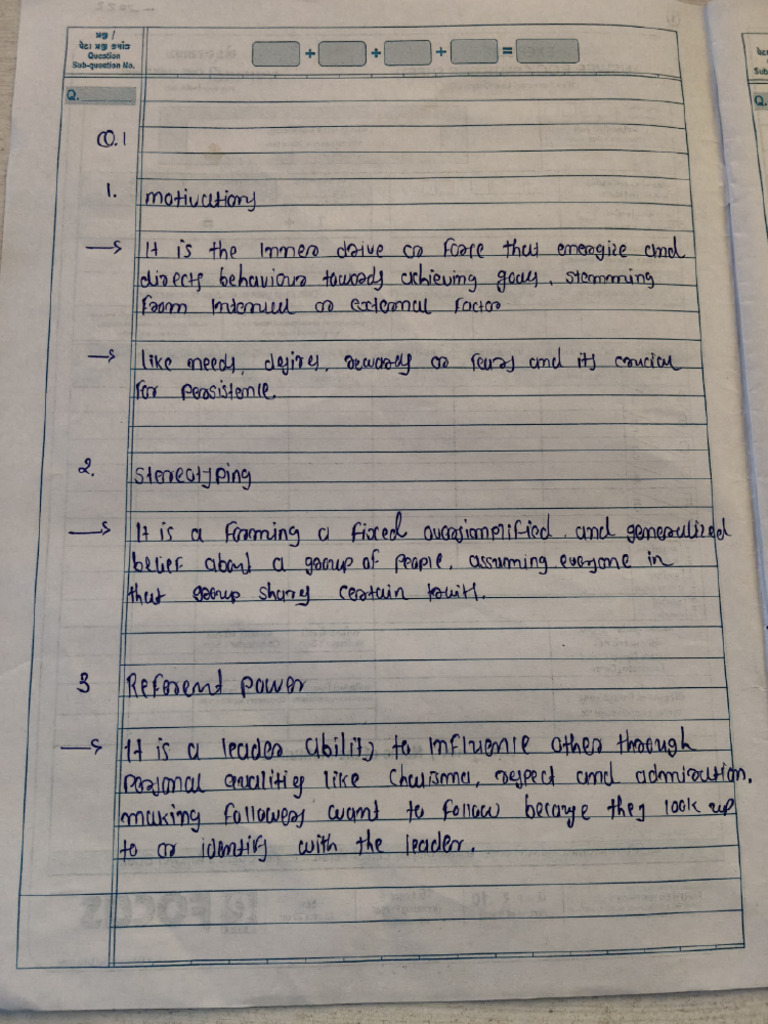 પ્રશ્ન /
પેટા પ્રશ્ન ક્રમાંક
Question
Sub-question No.
+ + + =
Q.
Q.1
1. motivations
→ It is the inner drive or force that energize and
directs behaviour towards achieving goals, stemming
from internal or external factor
→ like needs, desires, rewards or fears and its crucial
for persistence.
2. Stereotyping
→ It is a forming a fixed oversimplified and generalized
belief about a group of people, assuming everyone in
that group shares certain traits.
3 Referent power
→ It is a leader ability to influence other through
personal qualities like charisma, respect and admiration,
making followers want to follow because they look up
to or identify with the leader.
FOCUS